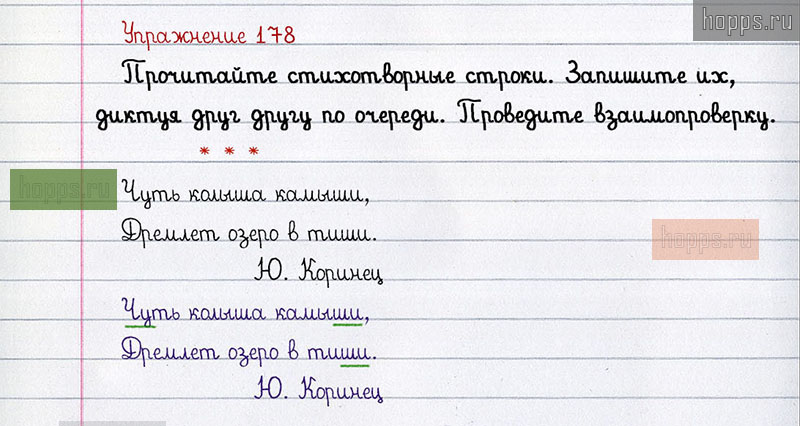 hopps.ru
Упражнение 178
Прочитайте стихотворные строки. Запишите их,
диктуя друг другу по очереди. Проведите взаимопроверку.
* * *
hopps.ru
Чуть колыша камыши,
Дремлет озеро в тиши.
hopps.ru
Ю. Коринец
Чуть колыша камыши,
Дремлет озеро в тиши.
Ю. Коринец